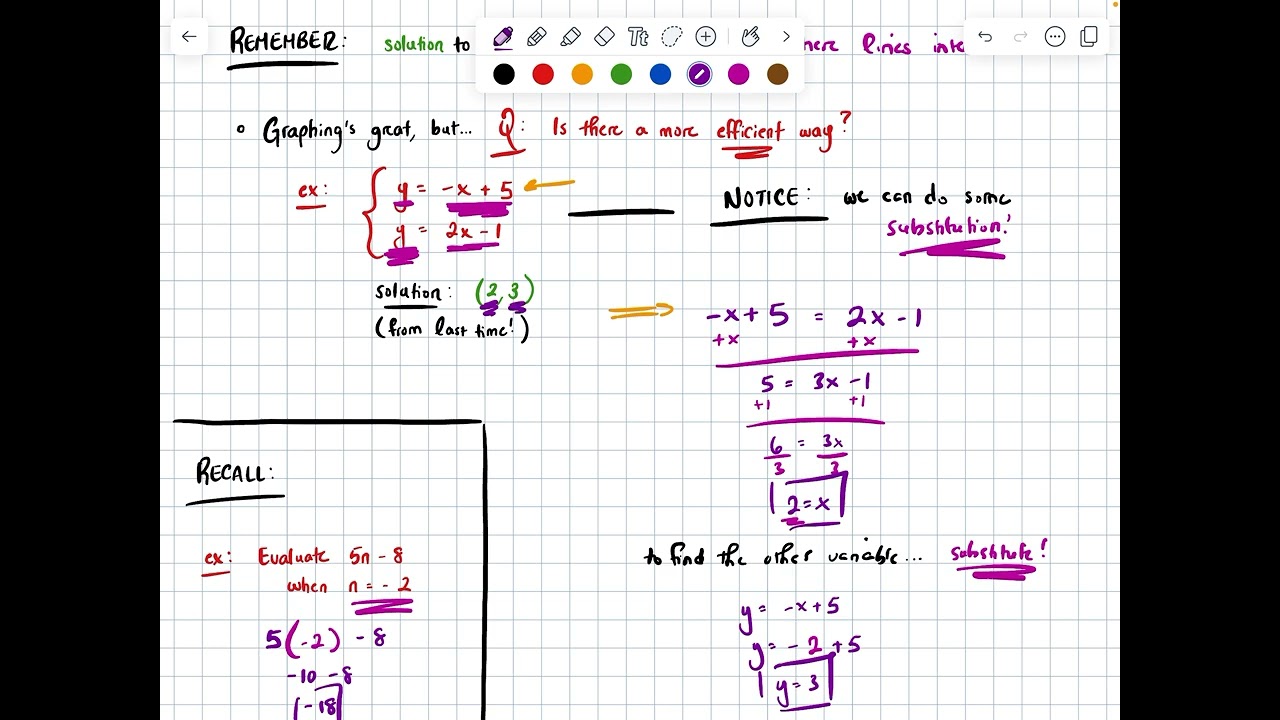 REMEMBER: solution to
here lines inte
Tt
° Graphing's great, but... Q: Is there a more efficient way?
ex: { y = -x + 5
y = 2x - 1
solution: (2, 3)
(from last time!)
NOTICE: we can do some
substitution!
-x + 5 = 2x - 1
+x +x
5 = 3x - 1
+1 +1
6 = 3x
3 3
2 = x
to find the other variable... substitute!
y = -x + 5
y = -2 + 5
y = 3
RECALL:
ex: Evaluate 5n - 8
when n = -2
5(-2) - 8
-10 - 8
-18